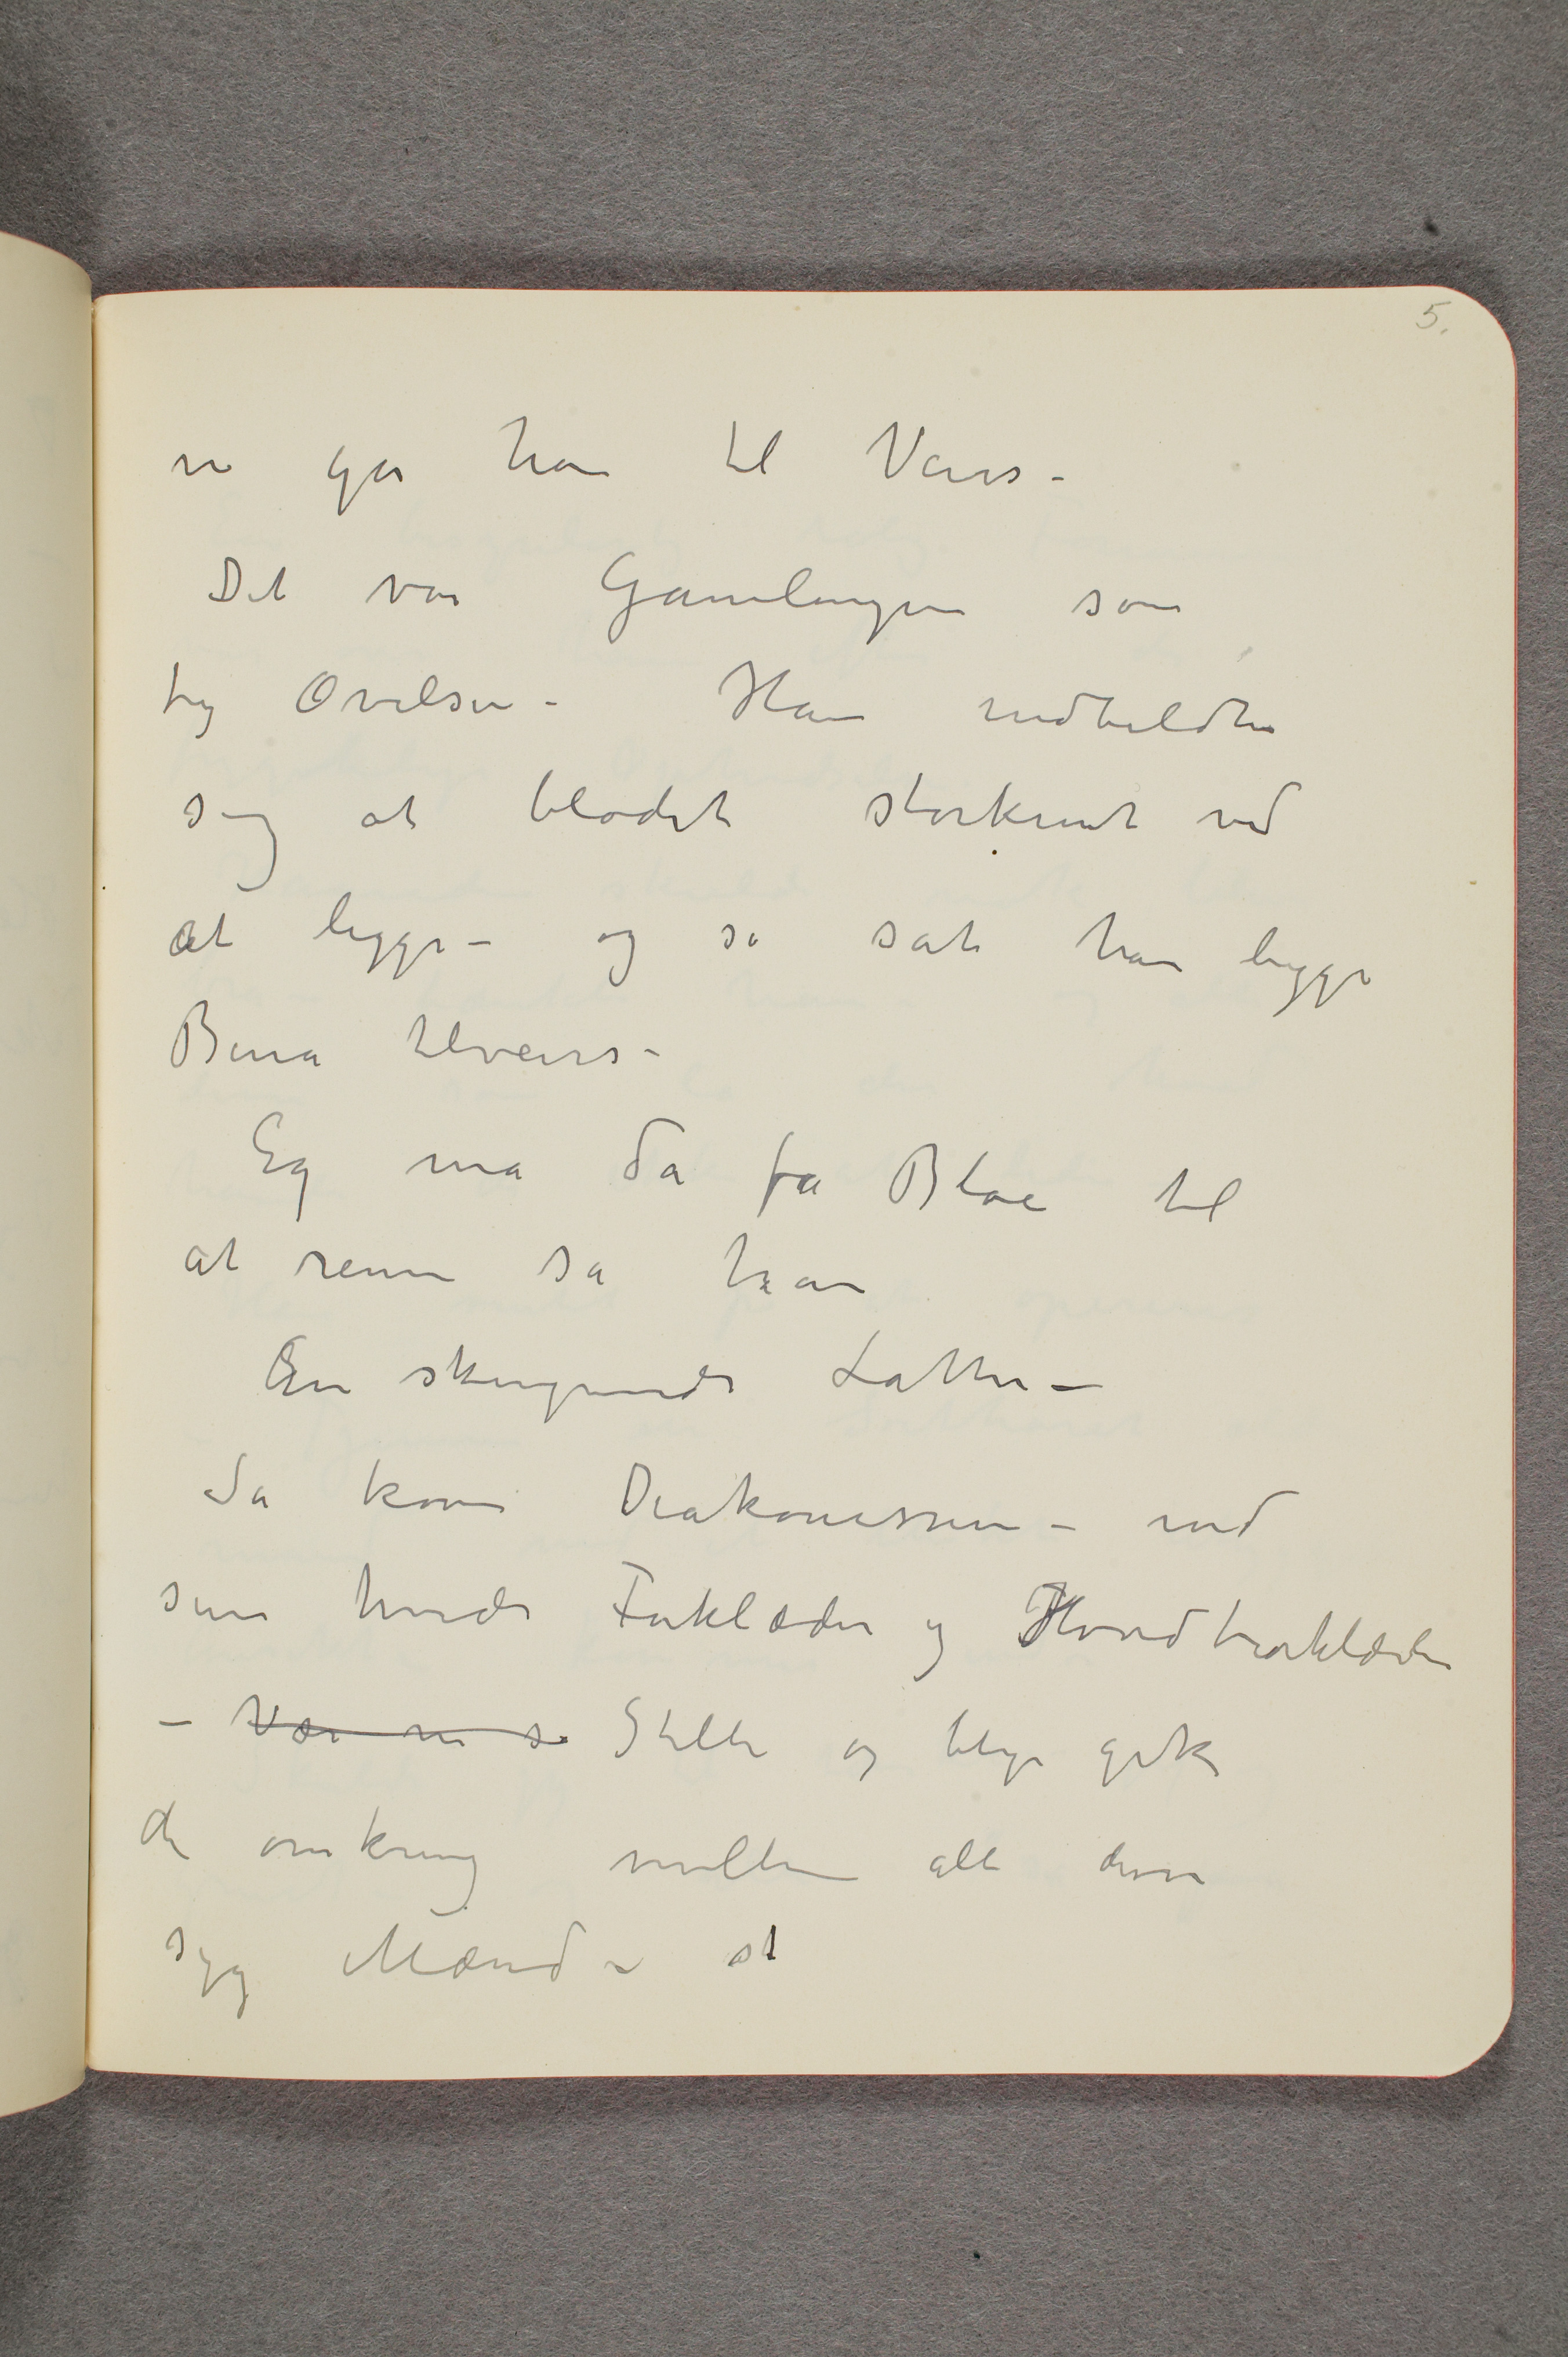 5.
nu går han til Veirs –
Det var Gamlingen som
tog Øvelser – Han indbildte
sig at blodet størknet ved
at ligge – og så satte han begge
Bena tilveirs –
Eg må då få Bloe til
at renne sa han
En skingrende Latter –
Så kom Diakonissen – med
sine hvide Forklæder og Hovedtørklæder
– Vær nu så Stille og blege gik
de omkring mellem alle disse
syge Mænd – st